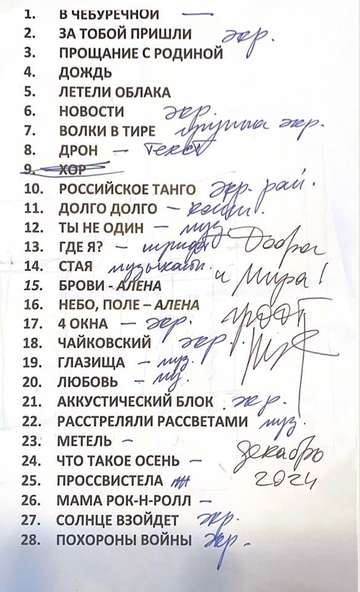 1. В ЧЕБУРЕЧНОЙ —
2. ЗА ТОБОЙ ПРИШЛИ экр.
3. ПРОЩАНИЕ С РОДИНОЙ
4. ДОЖДЬ
5. ЛЕТЕЛИ ОБЛАКА
6. НОВОСТИ экр.
7. ВОЛКИ В ТИРЕ экр.
8. ДРОН — текст
9. ХОР
10. РОССИЙСКОЕ ТАНГО экр. рай.
11. ДОЛГО ДОЛГО —
12. ТЫ НЕ ОДИН — муз.
13. ГДЕ Я? — Добра
14. СТАЯ музыканты. и мира!
15. БРОВИ - АЛЕНА
16. НЕБО, ПОЛЕ – АЛЕНА
17. 4 ОКНА — экр.
18. ЧАЙКОВСКИЙ экр.
19. ГЛАЗИЩА — муз.
20. ЛЮБОВЬ — муз.
21. АККУСТИЧЕСКИЙ БЛОК экр.
22. РАССТРЕЛЯЛИ РАССВЕТАМИ муз.
23. МЕТЕЛЬ —
24. ЧТО ТАКОЕ ОСЕНЬ — декабрь
25. ПРОССВИСТЕЛА 2024
26. МАМА РОК-Н-РОЛЛ —
27. СОЛНЦЕ ВЗОЙДЕТ экр.
28. ПОХОРОНЫ ВОЙНЫ экр.